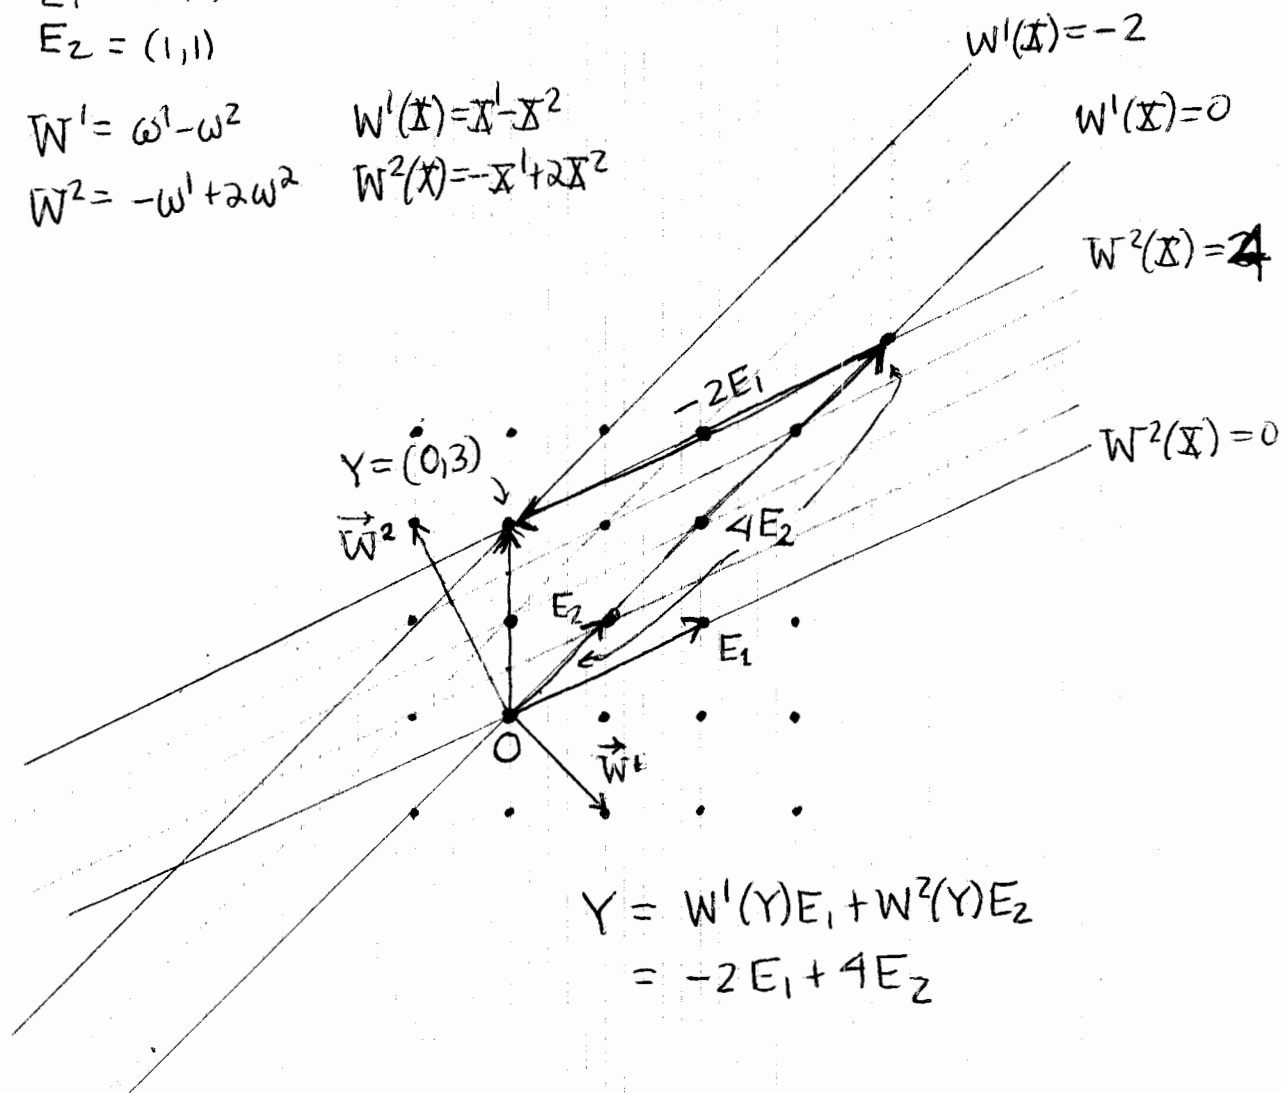 E₂ = (1,1)
W¹ = ω¹-ω²
W² = -ω¹+2ω²
W¹(X)=X¹-X²
W²(X)=-X¹+2X²
W¹(X)=-2
W¹(X)=0
W²(X)=4
W²(X)=0
-2E₁
Y=(0,3)
W²
4E₂
E₂
E₁
O
W¹
Y = W¹(Y)E₁+W²(Y)E₂
= -2E₁+4E₂